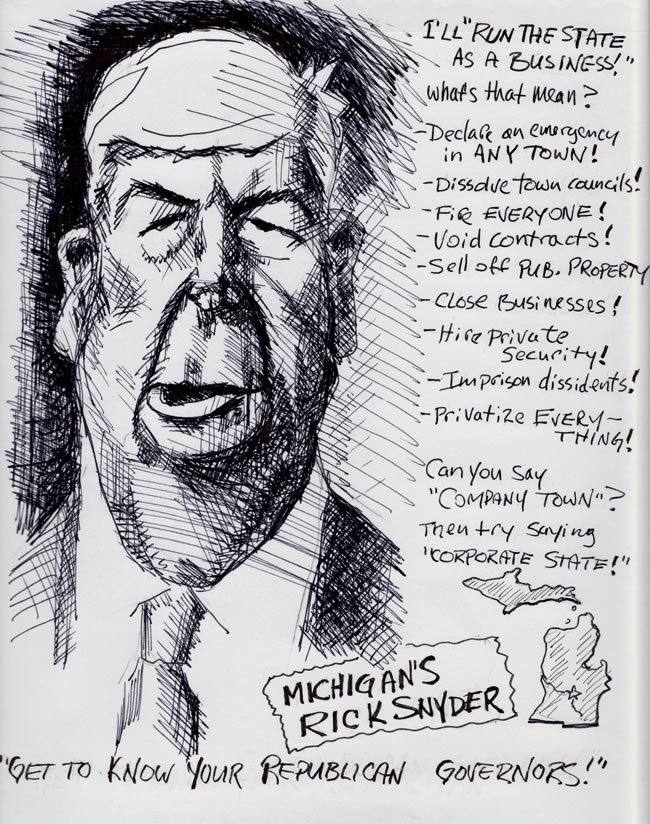 I'LL "RUN THE STATE
AS A BUSINESS!"
What's that mean?
- Declare an emergency
in ANY TOWN!
- Dissolve town councils!
- Fire EVERYONE!
- Void contracts!
- Sell off PUB. PROPERTY
- CLOSE BUSINESSES!
- Hire private
Security!
- Imprison dissidents!
- Privatize EVERY-
THING!
Can you say
"COMPANY TOWN"?
Then try saying
"CORPORATE STATE!"
MICHIGAN'S
RICK SNYDER
"GET TO KNOW YOUR REPUBLICAN GOVERNORS!"